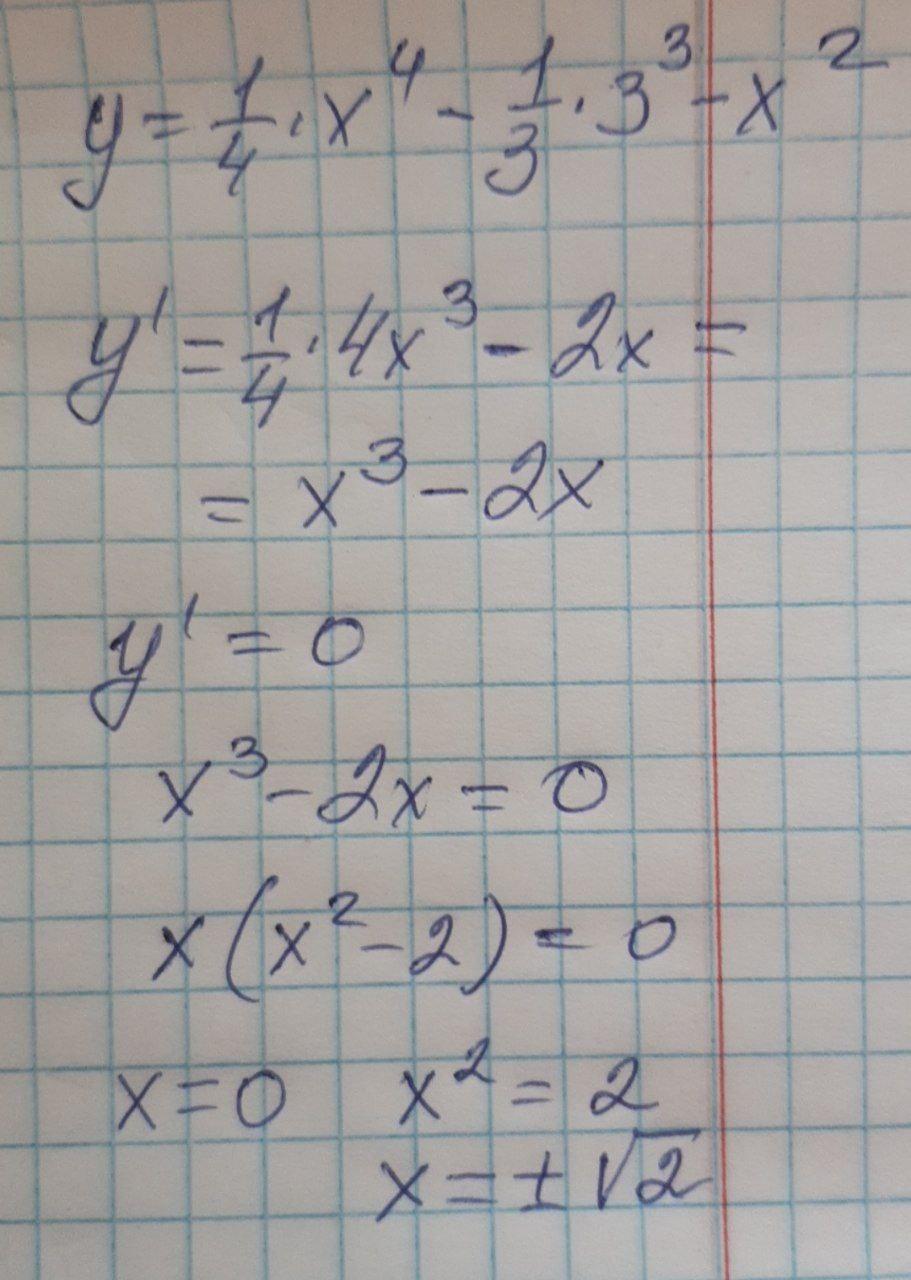 y = 1/4 · x^4 - 1/3 · 3^3 - x^2
y' = 1/4 · 4x^3 - 2x =
= x^3 - 2x
y' = 0
x^3 - 2x = 0
x(x^2 - 2) = 0
x = 0 x^2 = 2
x = ± √2